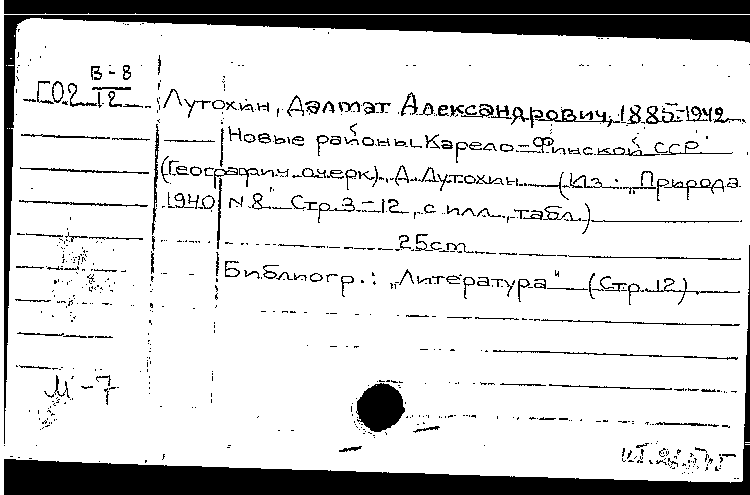 В-8
Г02 12
Лутохин, Далмат Александрович, 1885-1942
Новые районы Карело-Финской ССР
(Географич. очерк). Д. Лутохин (Из: „Природа
1940 N 8" Стр. 3-12, с илл., табл.)
25cm
Библиогр.: „Литература" (Стр. 12).
М-7